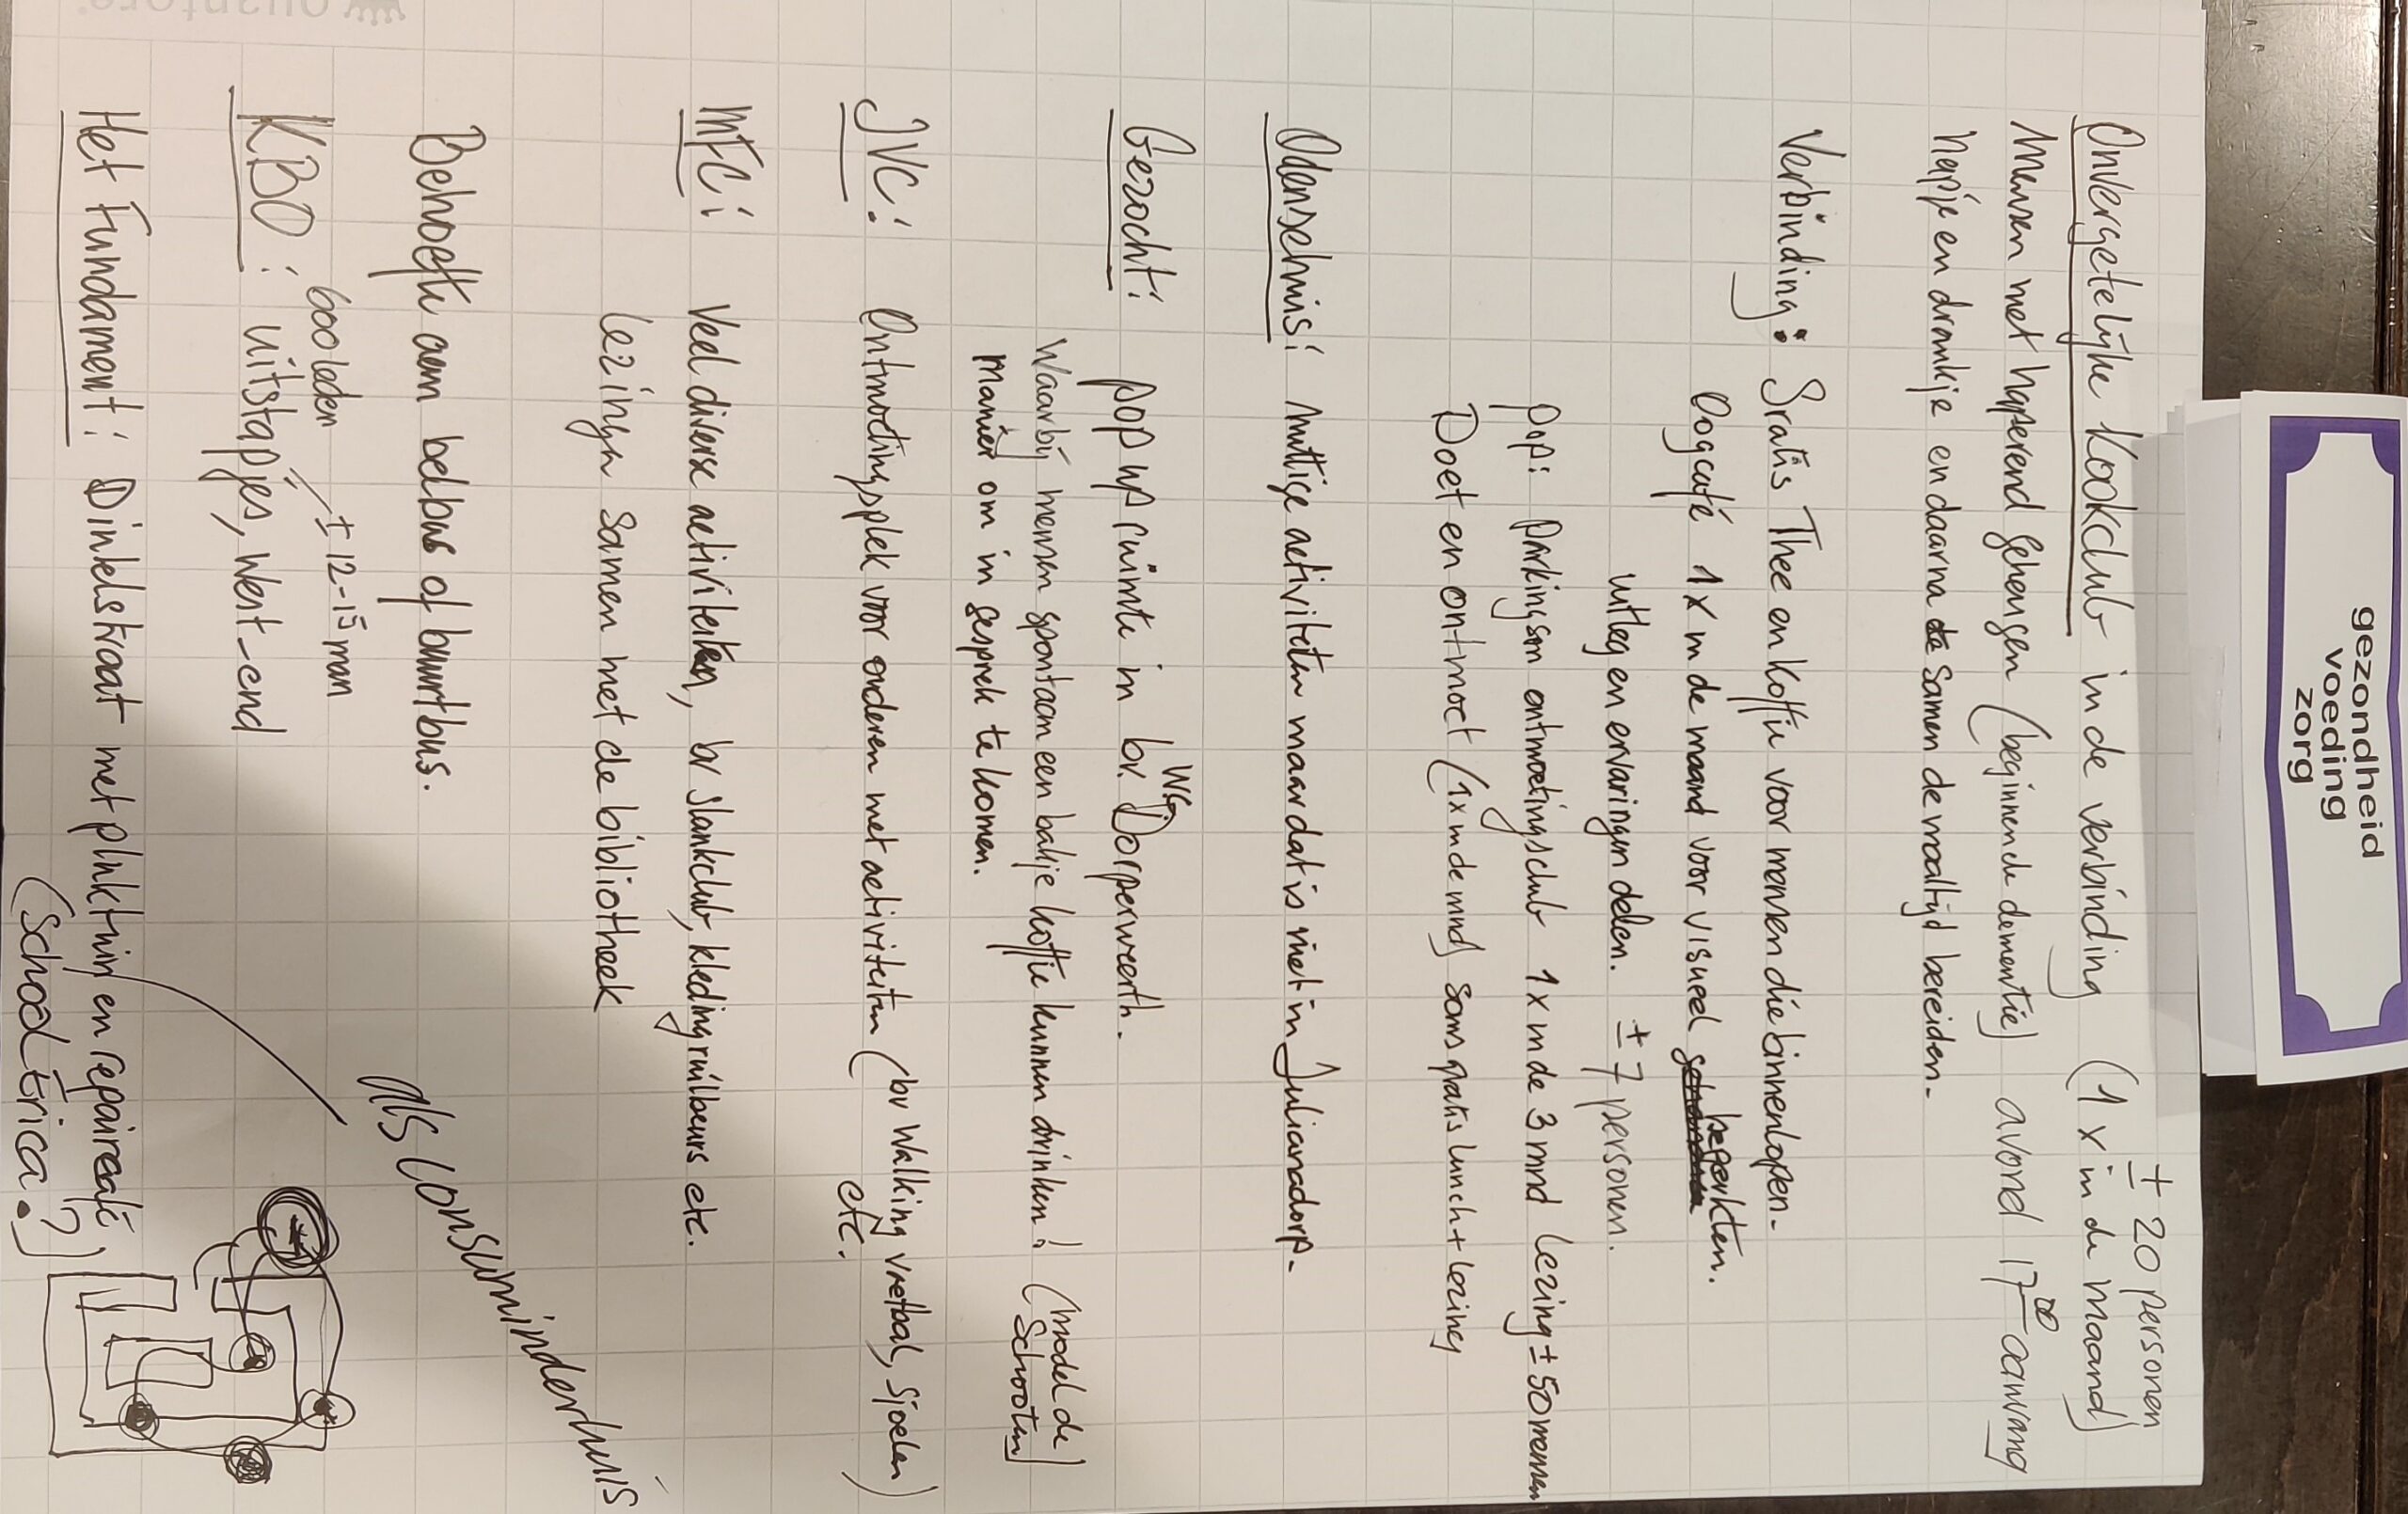 gezondheid
voeding
zorg
± 20 personen
Onvergetelijke Kookclub in de verbinding (1 x in de maand)
Mensen met haperend geheugen (beginnende dementie) avond 17⁰⁰ aanvang
hapje en drankje en daarna samen de maaltijd bereiden.
Verbinding: Gratis Thee en Koffie voor mensen die binnenlopen.
Oogcafé 1x in de maand voor visueel beperkten.
uitleg en ervaringen delen. ± 7 personen.
Pop: parkingson ontmoetingsclub 1x in de 3 mnd lezing ± 50 mensen
Doet en ontmoet (1x in de mnd) soms gratis lunch + lezing
Odensehuis: nuttige activiteiten maar dat is niet in Julianadorp.
Gezocht: pop up ruimte in bv. WG Dorperweerth.
Waarbij mensen spontaan een bakje koffie kunnen drinken! (model de
manier om in gesprek te komen. Schooten)
JVC: Ontmoetingsplek voor ouderen met activiteiten (bv Walking voetbal, sjoelen)
etc.
MFC: Veel diverse activiteiten, bv slankclub, kledingruilbeurs etc.
lezingen samen met de bibliotheek
Behoefte aan belbus of buurtbus.
600 leden ± 12-15 man
KBO: uitstapjes, West-end
als Consuminderhuis
Het Fundament: Dinkelstraat met pluktuin en repaircafé
(school Erica?)
quantore